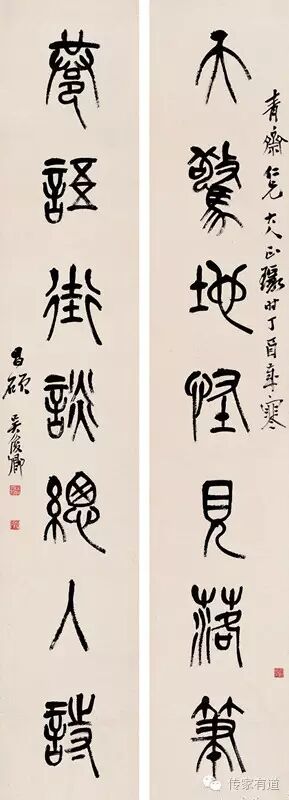 天驚地怪見落筆
青齋仁兄大人正时丁酉寒
巷語街談總入詩
昌碩吳俊卿
传家有道